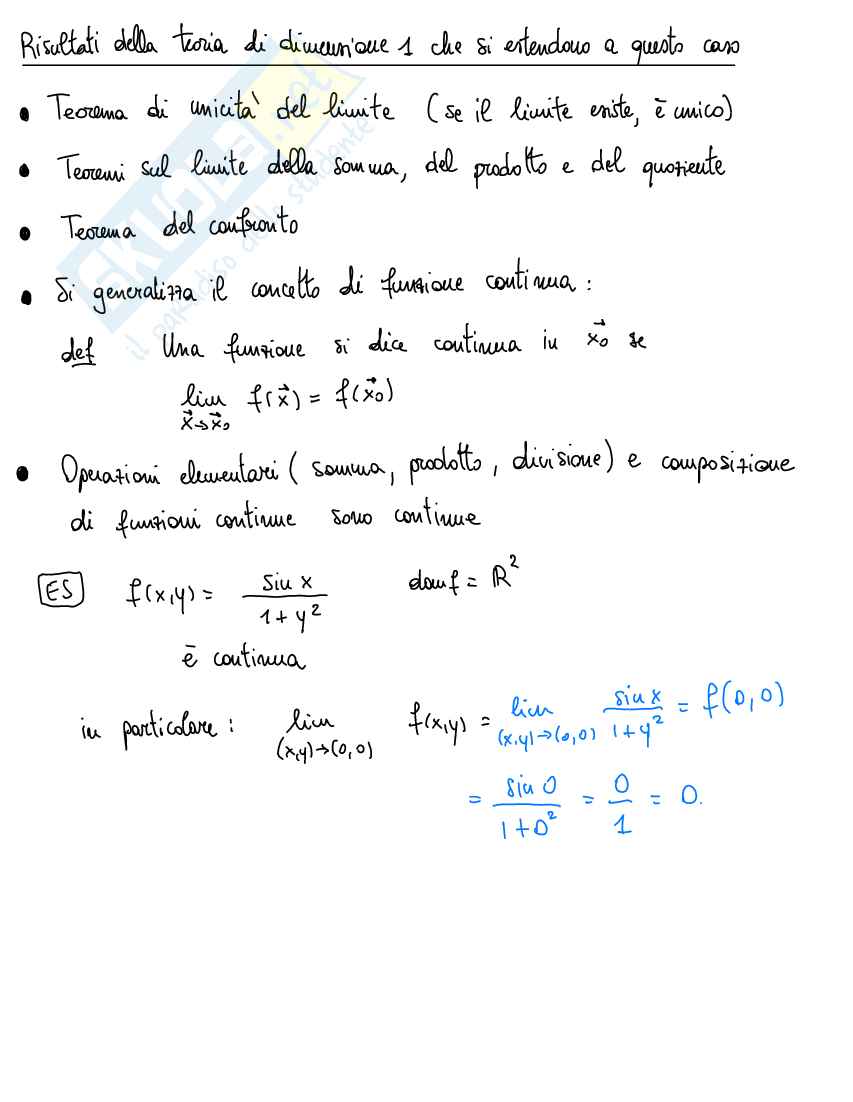 Risultati della teoria di dimensione 1 che si estendono a questo caso
• Teorema di unicità del limite (se il limite esiste, è unico)
• Teoremi sul limite della somma, del prodotto e del quoziente
• Teorema del confronto
• Si generalizza il concetto di funzione continua:
def Una funzione si dice continua in x⃗₀ se
lim f(x⃗) = f(x⃗₀)
x⃗→x⃗₀
• Operazioni elementari (somma, prodotto, divisione) e composizione
di funzioni continue sono continue
ES f(x,y) = sin x / 1 + y² domf = ℝ²
è continua
in particolare: lim (x,y)→(0,0) f(x,y) = lim (x,y)→(0,0) sin x / 1 + y² = f(0,0)
= sin 0 / 1 + 0² = 0 / 1 = 0.
SKUOLA.net
il paradiso dello studente